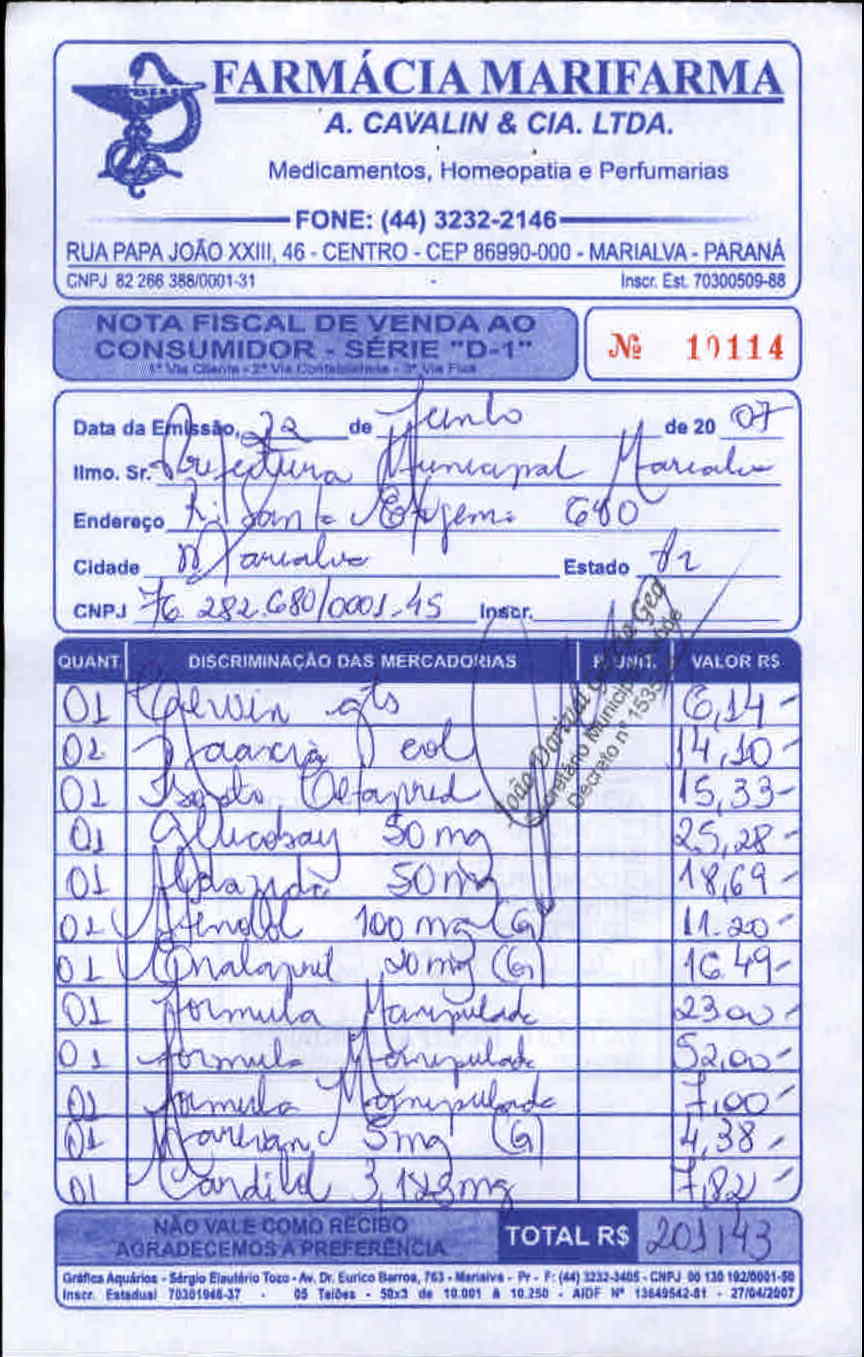 FARMÁCIA MARIFARMA
A. CAVALIN & CIA. LTDA.
Medicamentos, Homeopatia e Perfumarias
FONE: (44) 3232-2146
RUA PAPA JOÃO XXIII, 46 - CENTRO - CEP 86990-000 - MARIALVA - PARANÁ
CNPJ 82 266 388/0001-31 Inscr. Est. 70300509-88
NOTA FISCAL DE VENDA AO
CONSUMIDOR - SÉRIE "D-1"
1ª Via Cliente - 2ª Via Contabilidade - 3ª Via Fixa
Nº 10114
Data da Emissão, 22 de Junho de 20 07
Ilmo. Sr. Prefeitura Municipal Marialva
Endereço R: Santa Efigenia 680
Cidade Marialva Estado Pr
CNPJ 76.282.680/0001-45 Inscr.
João Gea
Secretário Municipal Saúde
Decreto nº 1535
QUANT. DISCRIMINAÇÃO DAS MERCADORIAS P. UNIT. VALOR R$
01 gts 6,14
01 col 14,10
01 15,33
01 Glucobay 50 mg 25,28
01 50 mg 18,69
01 Atenolol 100 mg (G) 11.20
01 Enalapril 20 mg (G) 16.49
01 formula Manipulada 23,00
01 formula Manipulada 52,00
01 formula Manipulada 7,00
01 5mg (G) 4,38
01 3,125mg 7,82
NÃO VALE COMO RECIBO
AGRADECEMOS A PREFERÊNCIA
TOTAL R$ 201,43
Gráfica Aquários - Sérgio Eleutério Tozo - Av. Dr. Eurico Barros, 763 - Marialva - Pr - F: (44) 3232-3405 - CNPJ 00 130 192/0001-50
Inscr. Estadual 70301946-37 - 05 Talões - 50x3 de 10.001 à 10.250 - AIDF Nº 13649542-81 - 27/04/2007